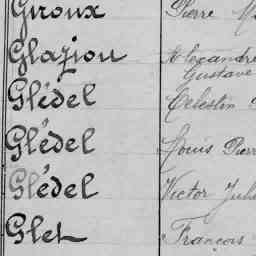 Giroux Pierre
Glazion Alexandre
Gustave
Glédel Célestin
Glédel Louis Pierre
Glédel Victor Jules
Glet François